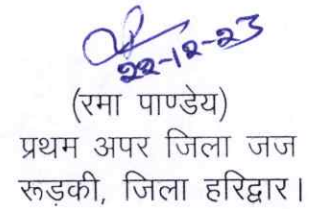 22-12-23
(रमा पाण्डेय)
प्रथम अपर जिला जज
रूड़की, जिला हरिद्वार।